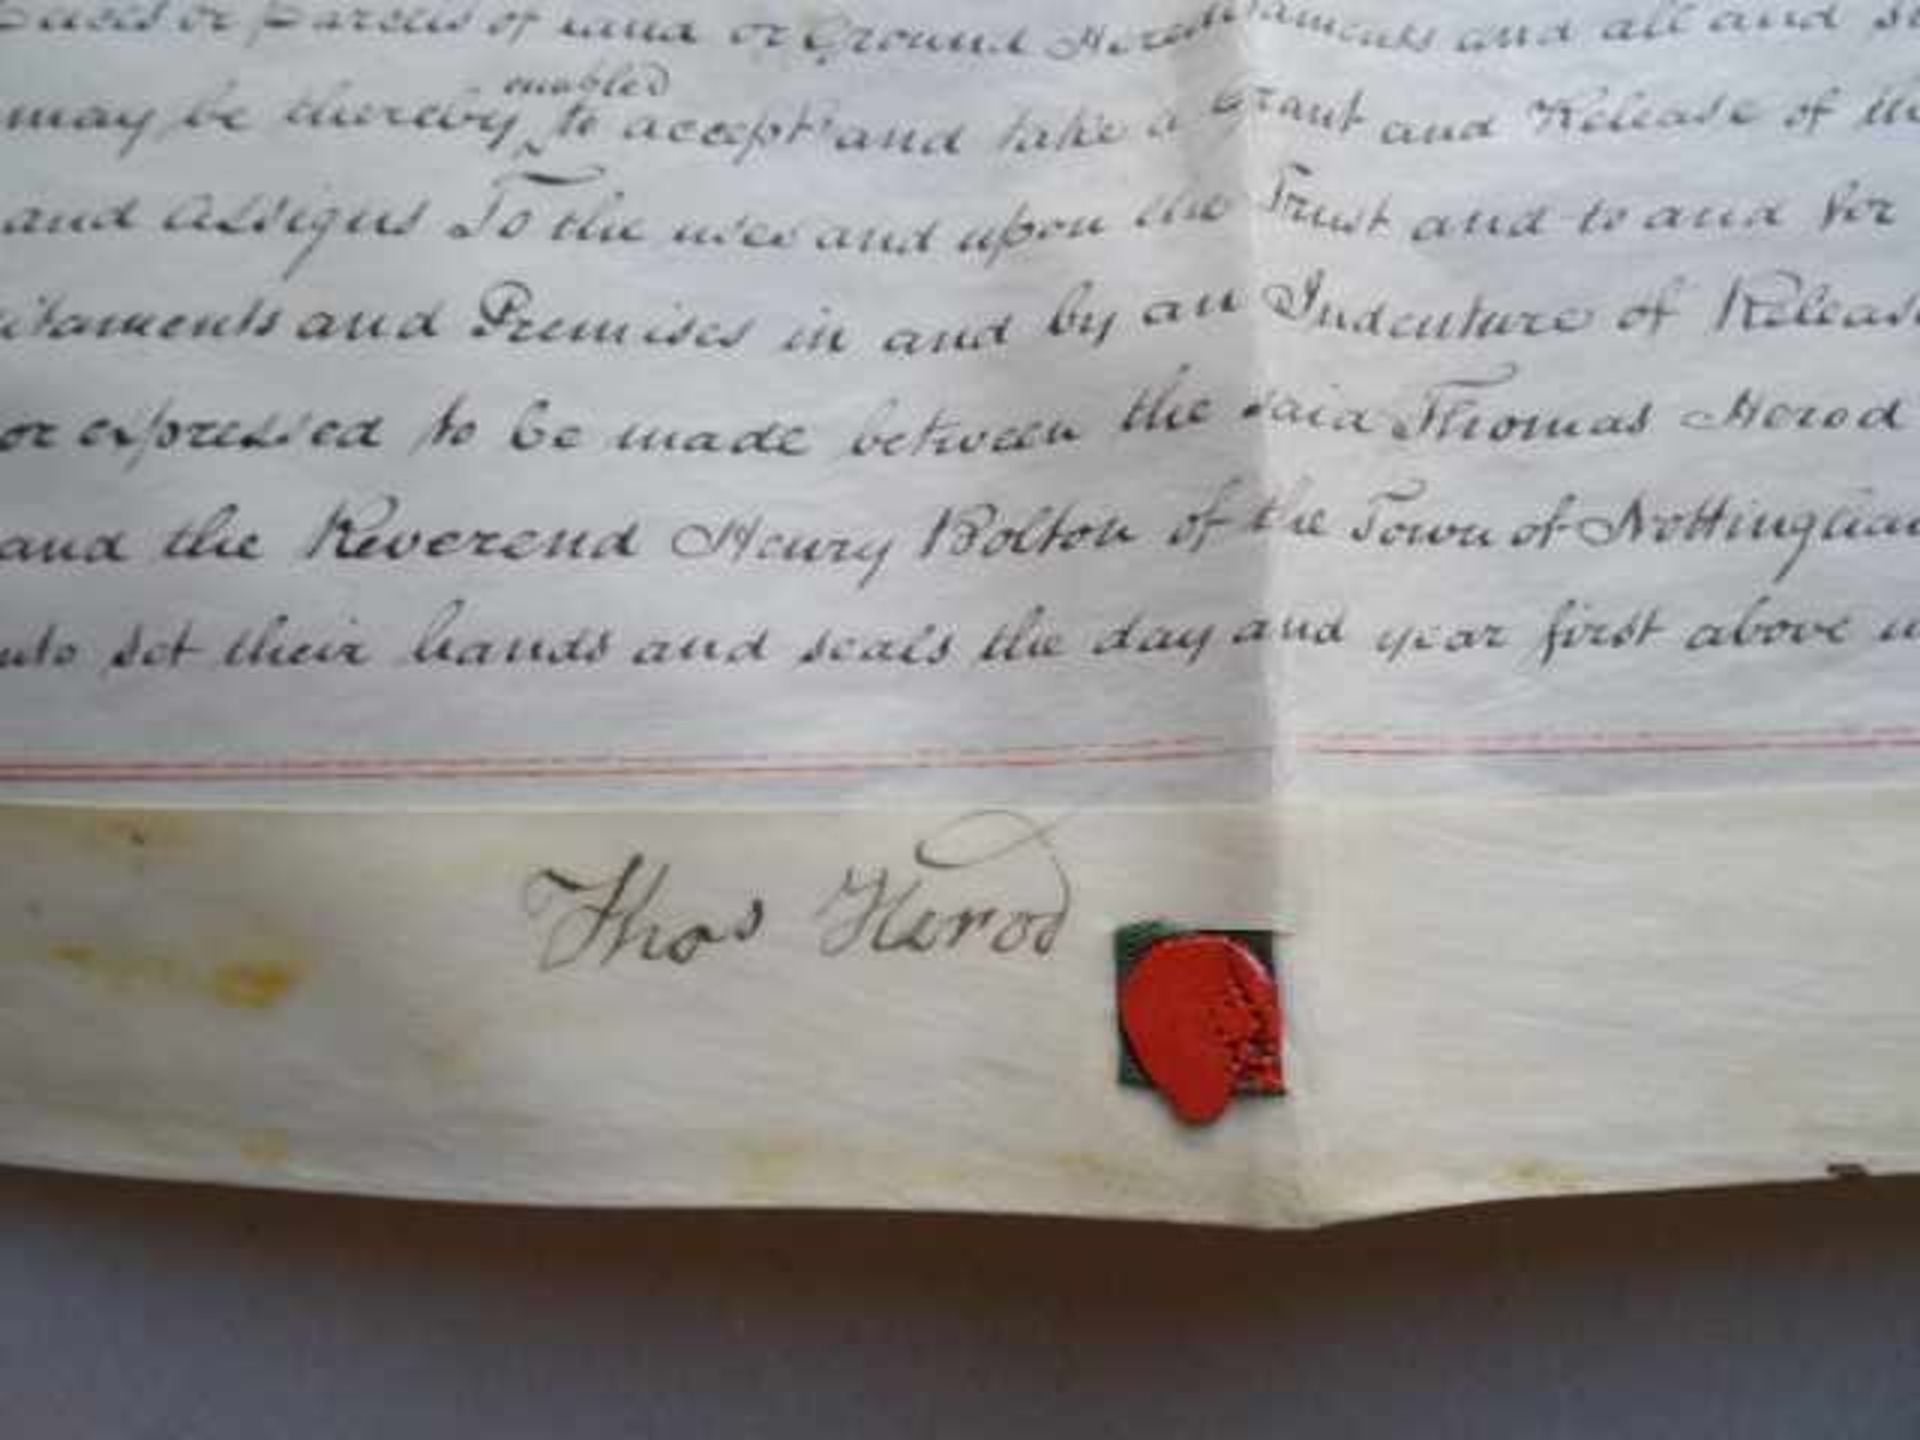 or Parcels of Land or Ground Hereditaments and all and
enabled
may be thereby to accept and take a Grant and Release of
and Assigns To the uses and upon the Trust and to and for
itaments and Premises in and by an Indenture of Release
or expressed to be made between the said Thomas Herod
and the Reverend Henry Bolton of the Town of Nottingham
unto set their hands and seals the day and year first above
Thos Herod